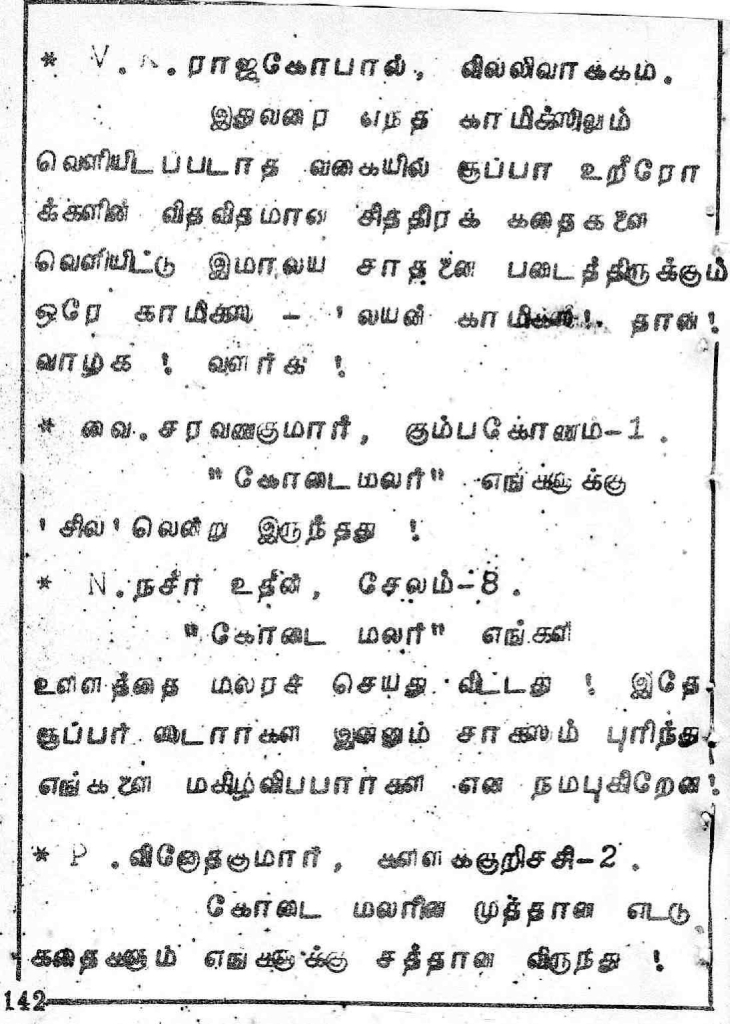 * V.K.ராஜகோபால், வில்லிவாக்கம்.
இதுவரை எந்த காமிக்ஸிலும்
வெளியிடப்படாத வகையில் சூப்பர் உறீரோ
க்களின் விதவிதமான சித்திரக் கதைகளை
வெளியிட்டு இமாலய சாதனை படைத்திருக்கும்
ஒரே காமிக்ஸ் - 'லயன் காமிக்ஸ்'. தான்!
வாழ்க ! வளர்க !
* வை.சரவணகுமார், கும்பகோணம்-1.
"கோடைமலர்" எங்களுக்கு
'சில'லென்று இருந்தது !
* N.நசீர் உதீன், சேலம்-8.
"கோடை மலர்" எங்கள்
உள்ளத்தை மலரச் செய்து விட்டது ! இதே
சூப்பர் ஸ்டார்கள் இன்னும் சாகஸம் புரிந்து
எங்களை மகிழ்விப்பார்கள் என நம்புகிறேன்!
* P.வினோதகுமார், கள்ளக்குறிச்சி-2.
கோடை மலரின் முத்தான எட்டு
கதைகளும் எங்களுக்கு சத்தான விருந்து !
142